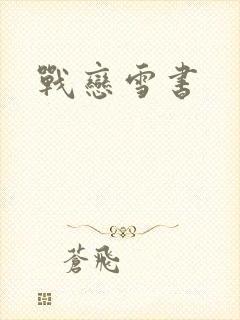 戰戀雪書
蒼飛